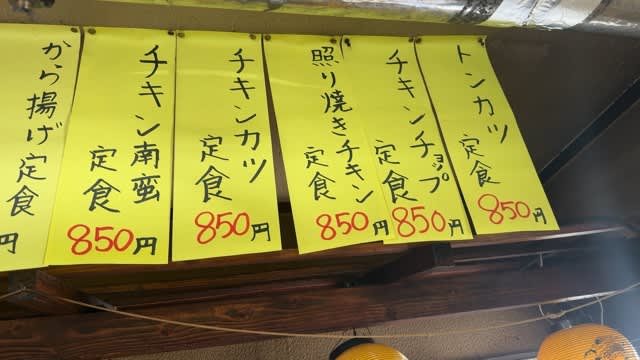 トンカツ
定食
850円
チキンチョップ
定食
850円
照り焼きチキン
定食
850円
チキンカツ
定食
850円
チキン南蛮
定食
850円
から揚げ定食
円